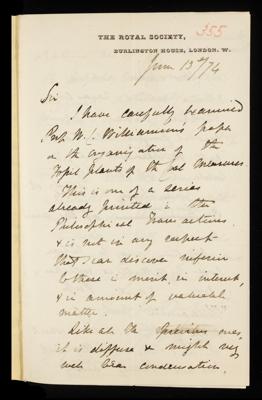 355
THE ROYAL SOCIETY,
BURLINGTON HOUSE, LONDON. W.
June 13th/74
Sir
I have carefully examined
Prof W. C. Williamson's paper
on the organization of the
Fossil plants of the Coal Measures
This is one of a series
already printed in the
Philosophical Transactions
& is not in any respect
that I can discover inferior
to these in merit, in interest,
& in amount of valuable
matter.
Like all the previous ones,
it is diffuse & might very
well bear condensation.